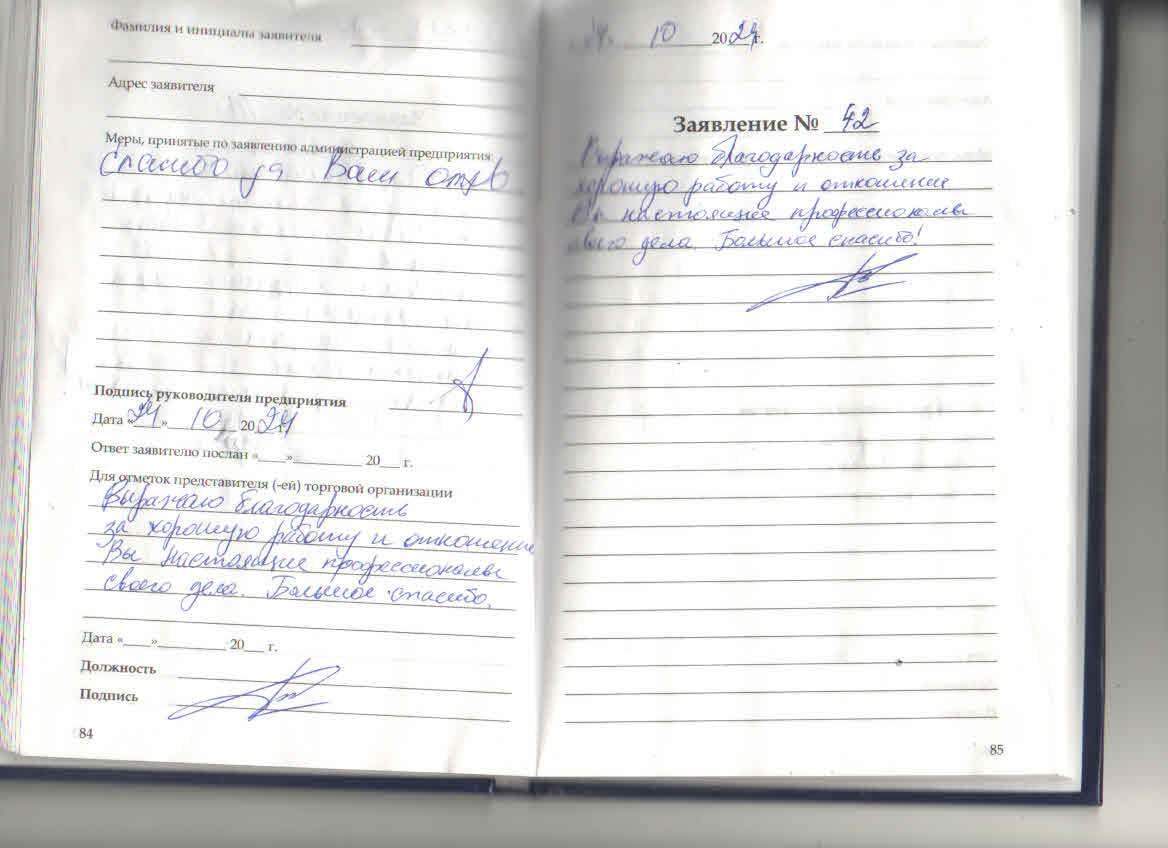 Фамилия и инициалы заявителя
Адрес заявителя
Меры, принятые по заявлению администрацией предприятия
Спасибо за Ваш отзв
Подпись руководителя предприятия
Дата «24» 10 2024 г.
Ответ заявителю послан «____»__________ 20___ г.
Для отметок представителя (-ей) торговой организации
Выражаю благодарность
за хорошую работу и отношение
Вы настоящие профессионалы
своего дела. Большое спасибо.
Дата «____»__________ 20___ г.
Должность
Подпись
84
24. 10 2024 г.
Заявление № 42
Выражаю благодарность за
хорошую работу и отношение
Вы настоящие профессионалы
своего дела. Большое спасибо!
85